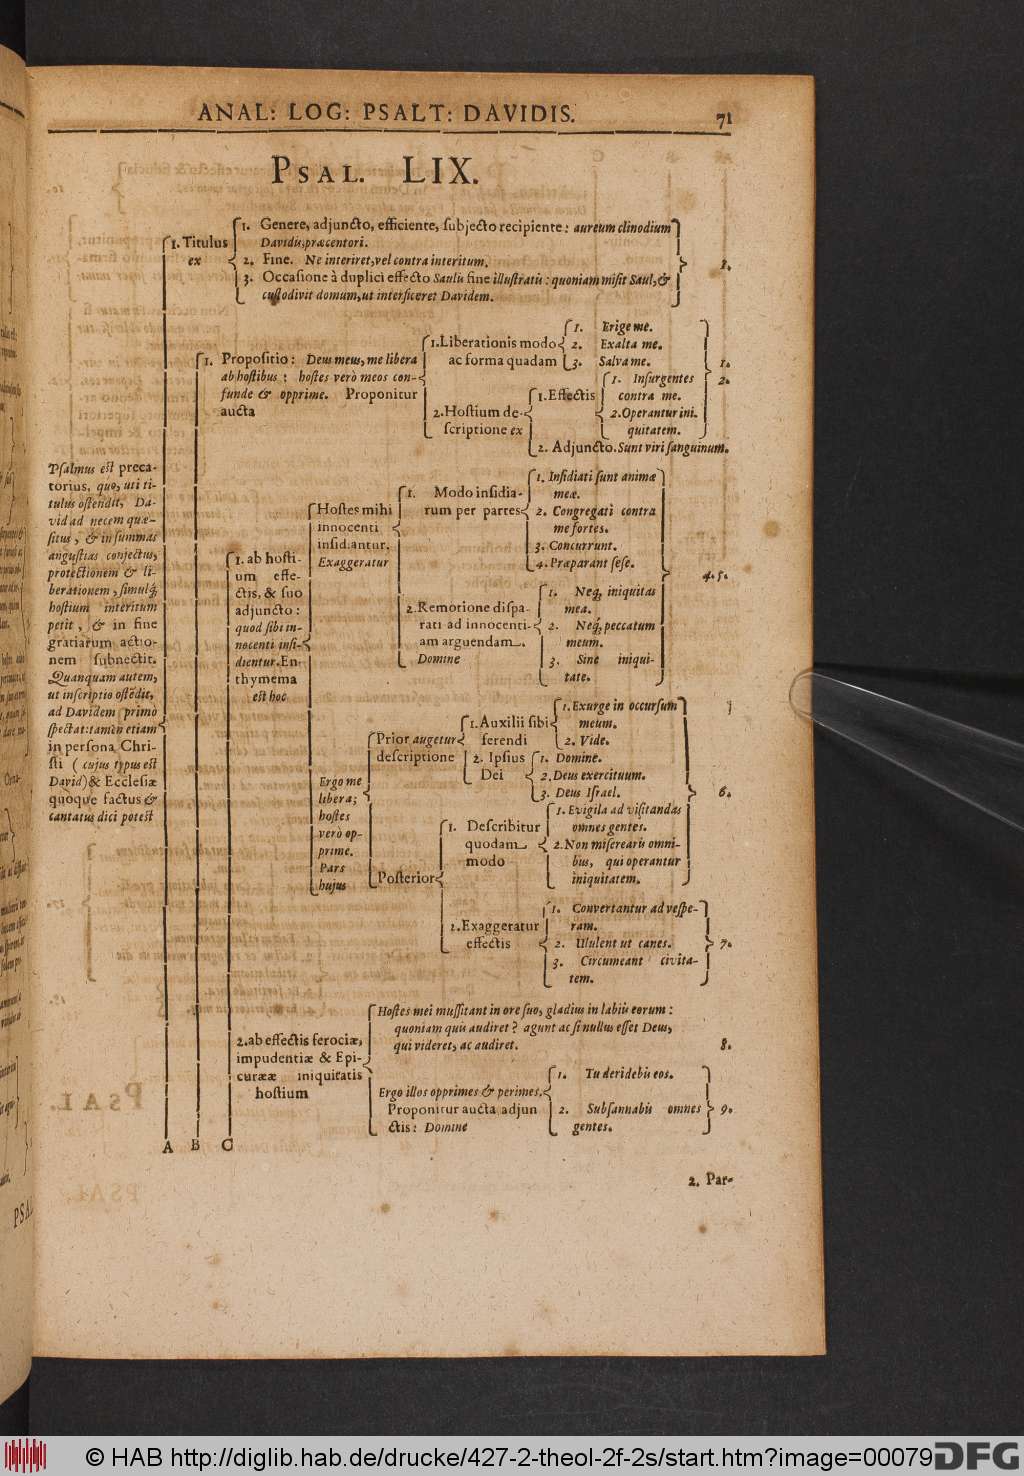 ANAL: LOG: PSALT: DAVIDIS.
71
PSAL. LIX.
Psalmus est preca-
torius, quo, uti ti-
tulus ostendit, Da-
vid ad necem quæ-
situs, & in summas
angustias conjectus,
protectionem & li-
berationem, simulq́;
hostium interitum
petit, & in fine
gratiarum actio-
nem subnectit.
Quanquam autem,
ut inscriptio ostēdit,
ad Davidem primò
spectat: tamen etiam
in persona Chri-
sti (cujus typus est
David) & Ecclesiæ
quoque factus &
cantatus dici potest
1. Titulus
ex
1. Genere, adjuncto, efficiente, subjecto recipiente: aureum clinodium
Davidis, præcentori.
2. Fine. Ne interiret, vel contra interitum.
3. Occasione à duplici effectu Saulis fine illustratis: quoniam misit Saul, &
custodivit domum, ut interficeret Davidem.
1.
1. Propositio: Deus meus, me libera
ab hostibus: hostes verò meos con-
funde & opprime. Proponitur
aucta
1. Liberationis modo
ac forma quadam
1. Erige me.
2. Exalta me.
3. Salva me.
2. Hostium de-
scriptione ex
1. Effectis
1. Insurgentes
contra me.
2. Operantur ini-
quitatem.
2. Adjuncto. Sunt viri sanguinum.
1.
2.
1. ab hosti-
um effe-
ctis, & suo
adjuncto:
quod sibi in-
nocenti insi-
dientur. En-
thymema
est hoc
Hostes mihi
innocenti
insidiantur.
Exaggeratur
1. Modo insidia-
rum per partes
1. Insidiati sunt animæ
meæ.
2. Congregati contra
me fortes.
3. Concurrunt.
4. Præparant sese.
2. Remotione dispa-
rati ad innocenti-
am arguendam.
Domine
1. Neq; iniquitas
mea.
2. Neq́; peccatum
meum.
3. Sine iniqui-
tate.
4. 5.
Ergo me
libera;
hostes
verò op-
prime.
Pars
hujus
Prior augetur
descriptione
1. Auxilii sibi
ferendi
1. Exurge in occursum
meum.
2. Vide.
2. Ipsius
Dei
1. Domine.
2. Deus exercituum.
3. Deus Israel.
Posterior
1. Describitur
quodam
modo
1. Evigila ad visitandas
omnes gentes.
2. Non misereâris omni-
bus, qui operantur
iniquitatem.
6.
2. Exaggeratur
effectis
1. Convertantur ad vespe-
ram.
2. Ululent ut canes.
3. Circumeant civita-
tem.
7.
2. ab effectis ferociæ,
impudentiæ & Epi-
curææ iniquitatis
hostium
Hostes mei mussitant in ore suo, gladius in labiis eorum:
quoniam quis audiret? agunt ac si nullus esset Deus,
qui videret, ac audiret.
8.
Ergo illos opprimes & perimes.
Proponitur aucta adjun
ctis: Domine
1. Tu deridebis eos.
2. Subsannabis omnes
gentes.
9.
A B C
2. Par-
© HAB http://diglib.hab.de/drucke/427-2-theol-2f-2s/start.htm?image=00079
DFG